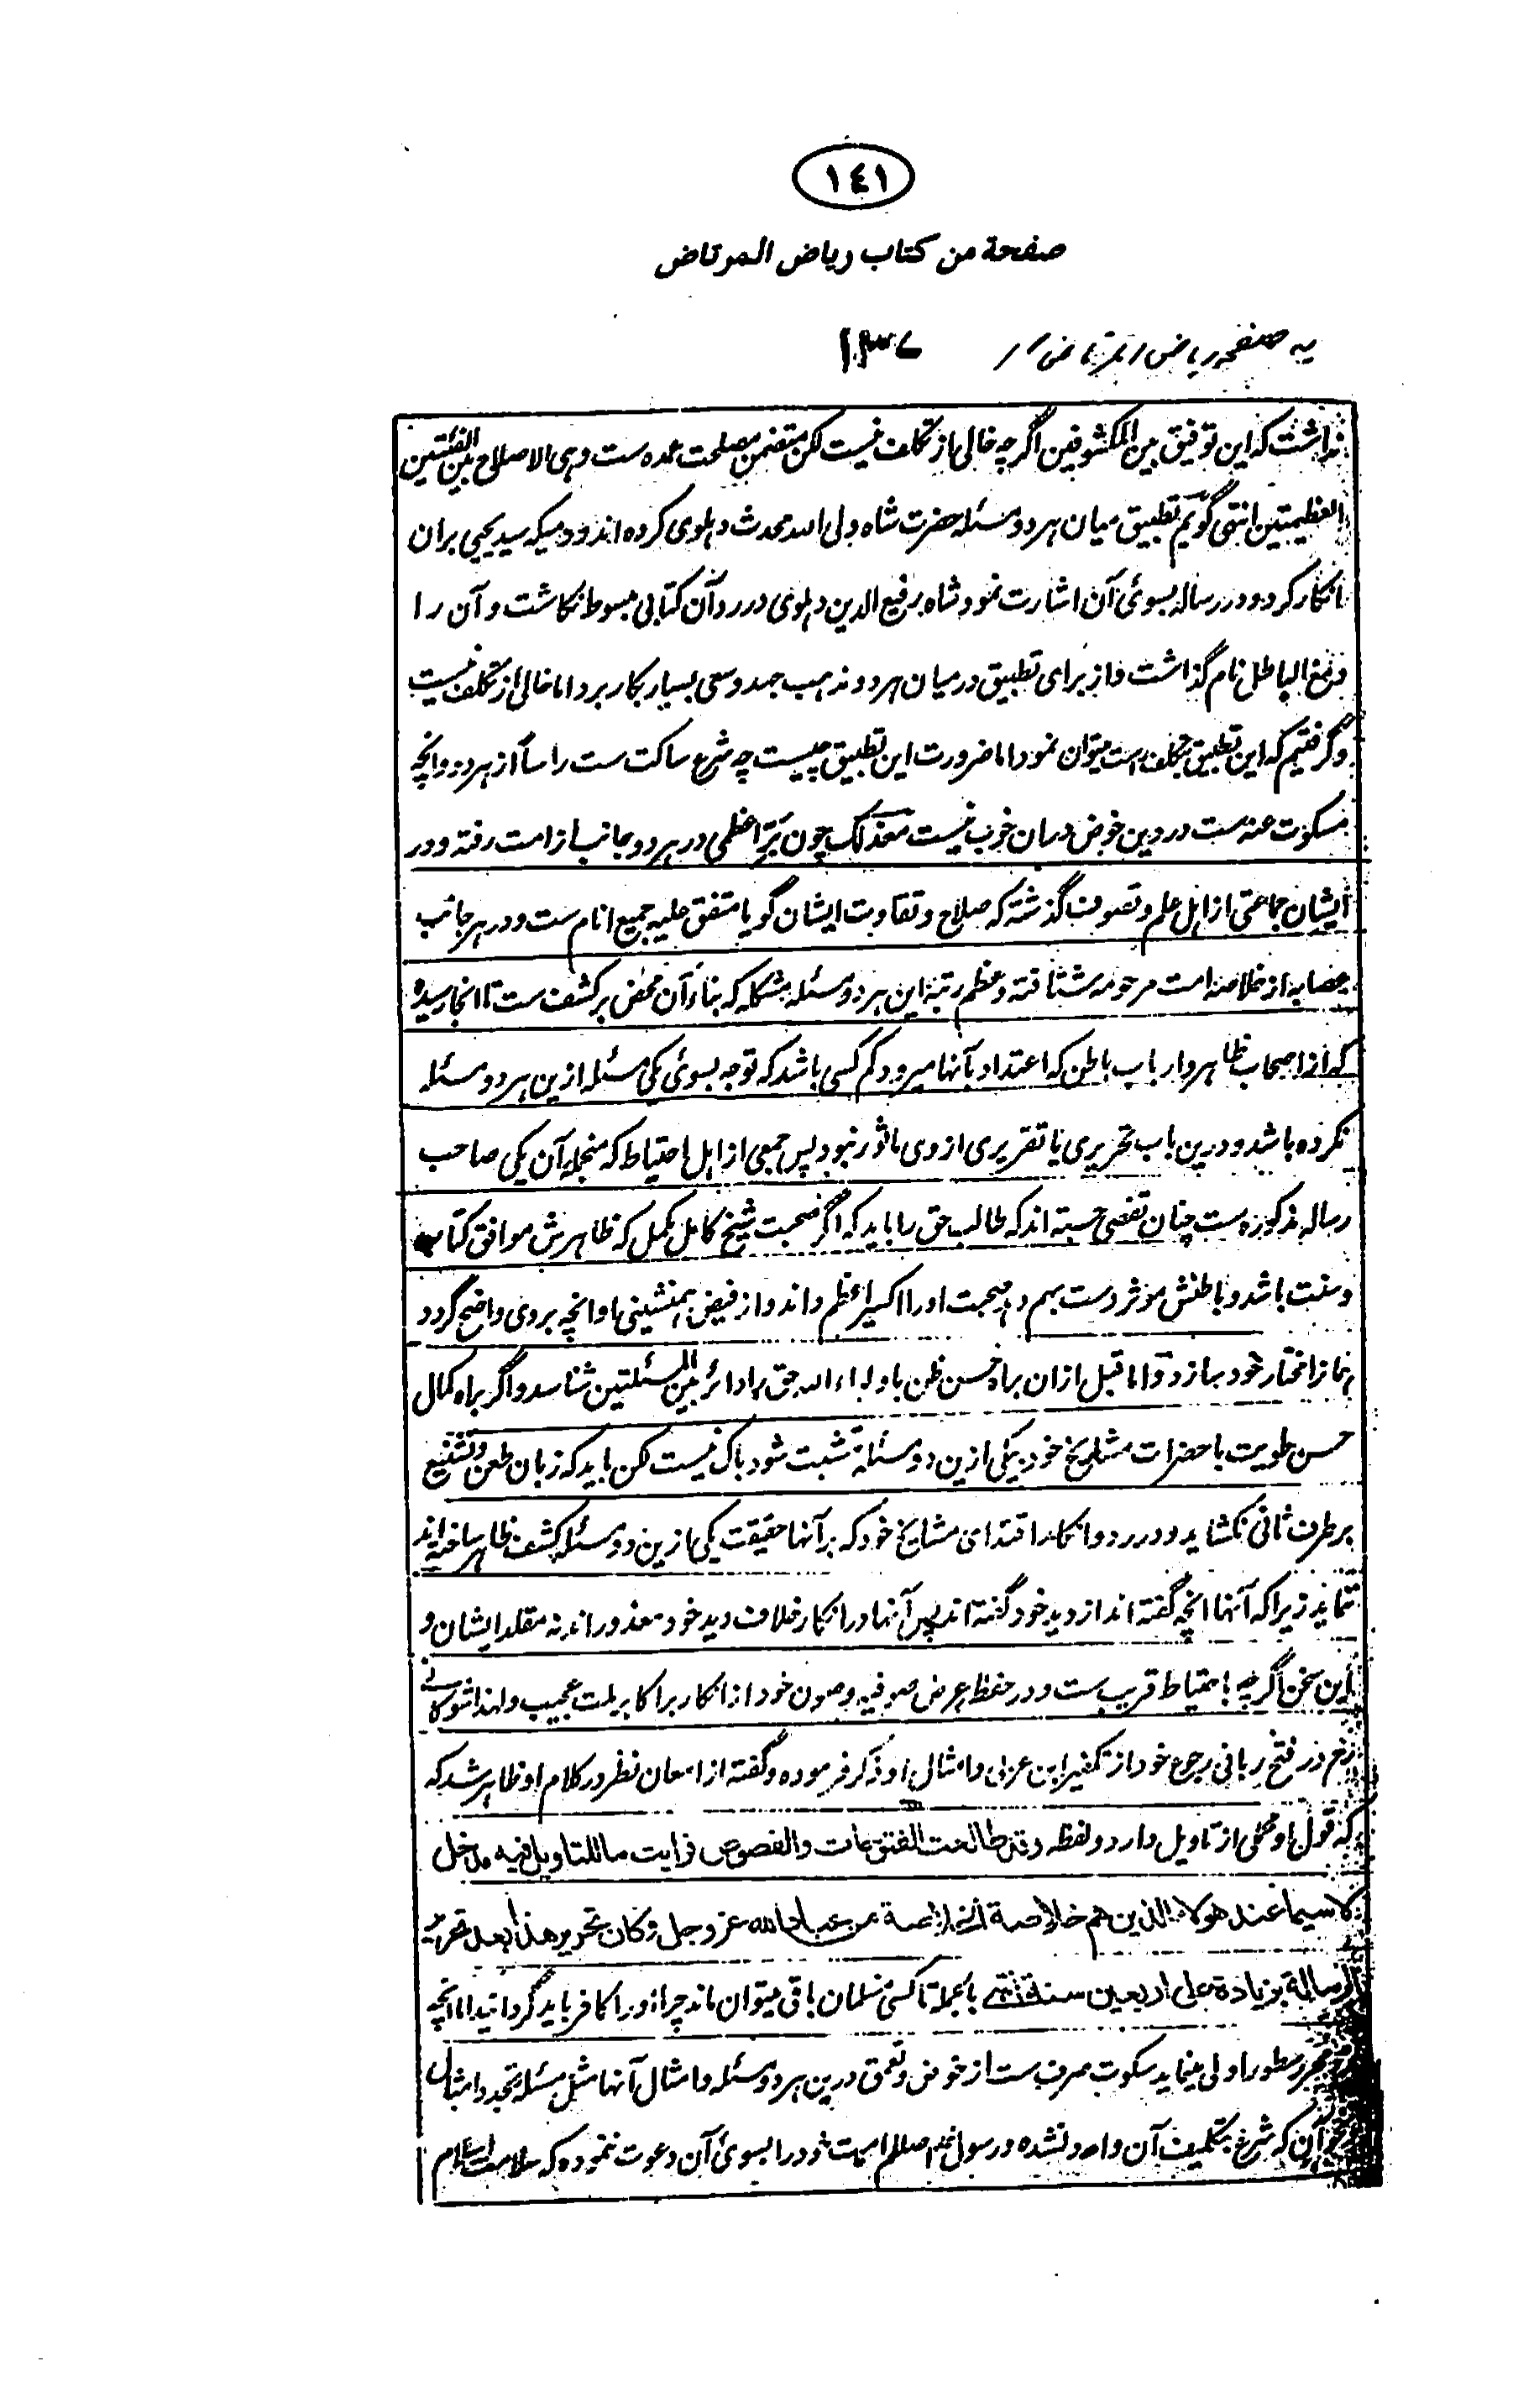 ١٤١
صفحة من كتاب رياض المرتاض
یہ صفحہ ریاض المرتاض ۱۳۷
نداشت که این توفیق بین المکشوفین اگرچه خالی از تکلف نیست لکن متضمن مصلحت عمده ست وہی الاصلاح بین الفئتین
العظیمتین انتہی گویم تطبیق میان ہر دو مسئلہ حضرت شاه ولی اللہ محدث دہلوی کرده اند و دمیکہ سید یحیی بران
انکار کرد و در رسالہ بسوئ آن اشارت نمود شاه رفیع الدین دہلوی در رد آن کتابی مبسوط نگاشت و آن را
دمغ الباطل نام گذاشت و از برای تطبیق درمیان ہر دو مذہب جہد و سعی بسیار بکار برد اما خالی از تکلف نیست
و گرفتیم که این تطبیق بتکلف میتوان نمود اما ضرورت این تطبیق چیست چه شرع ساکت ست راساً از ہر دو و انچه
مسکوت عنه ست در دین خوض دران خوب نیست معذلک چون اعظمی در ہر دو جانب از امت رفته و در
ایشان جماعتی از اہل علم و تصوف گذشته که صلاح و تقاوت ایشان گویا متفق علیه جمیع انام ست و در ہر جانب
عصابه از خلاصه امت مرحومه شتافته و عظم رتبه این ہر دو مسئله مشکله که بناء آن محض بر کشف ست تا انجا رسیده
که از اصحاب ظاہر و ارباب باطن که اعتداد بآنها میرود کم کسی باشد که توجه بسوئ یکی مسئله ازین ہر دو مسئله
نکرده باشد و درین باب تحریری یا تقریری از وی ماثور نبود پس جمعی از اہل احتیاط که منجمله آن یکی صاحب
رساله مذکوره ست چنان تفصی جسته اند که طالب حق را باید که اگر صحبت شیخ کامل مکمل که ظاہرش موافق کتاب
و سنت باشد و باطنش موثر دست بہم دہد صحبت او را اکسیر اعظم داند و از فیض ہمنشینی او انچه بروی واضح گردد
ہمانرا مختار خود سازد و اما قبل ازان براه حسن ظن باولیاء اللہ حق را دائر بین المسئلتین شناسد و اگر براه کمال
حسن طویت با حضرات مشایخ خود بیکی ازین دو مسئله متشبت شود باک نیست لکن باید که زبان طعن و تشنیع
بر طرف ثانی نکشاید و در رد و انکار اقتدای مشایخ خود که بر آنها حقیقت یکی ازین دو مسئله بکشف ظاہر ساخته اند
ننماید زیرا که آنها انچه گفته اند از دید خود گفته اند پس آنها در انکار خلاف دید خود معذور اند نه مقلد ایشان و
این سخن اگرچه باحتیاط قریب ست و در حفظ عرض صوفیه و صون خود از انکار بر اکابر ملت عجیب و لهذا شوکانی
در فتح ربانی رجوع خود از تکفیر ابن عربی و امثال او ذکر فرموده و گفته از امعان نظر در کلام او ظاہر شد که
که قول او محملی از تاویل دارد و لفظه وقد طالعت الفتوحات والفصوص فرایت ما للتاویل فیه مدخل
لا سیما عند هولاء الذین هم خلاصة الخلاصة من عباد الله عز وجل وکان تحریر هذا بعد تحریر
الرسالة بزیادة علی اربعین سنة انتهی بالجمله تا کسی مسلمان باقی میتوان ماند چرا او را کافر باید گردانید اما انچه
محرر سطور اولی مینماید سکوت صرف ست از خوض و تعمق درین ہر دو مسئله و امثال آنها مثل مسئله تجدد امثال
که شرع بتکلیف آن وارد نشده و رسول خدا صلعم امت خود را بسوئ آن دعوت ننموده که سلامت اسلام